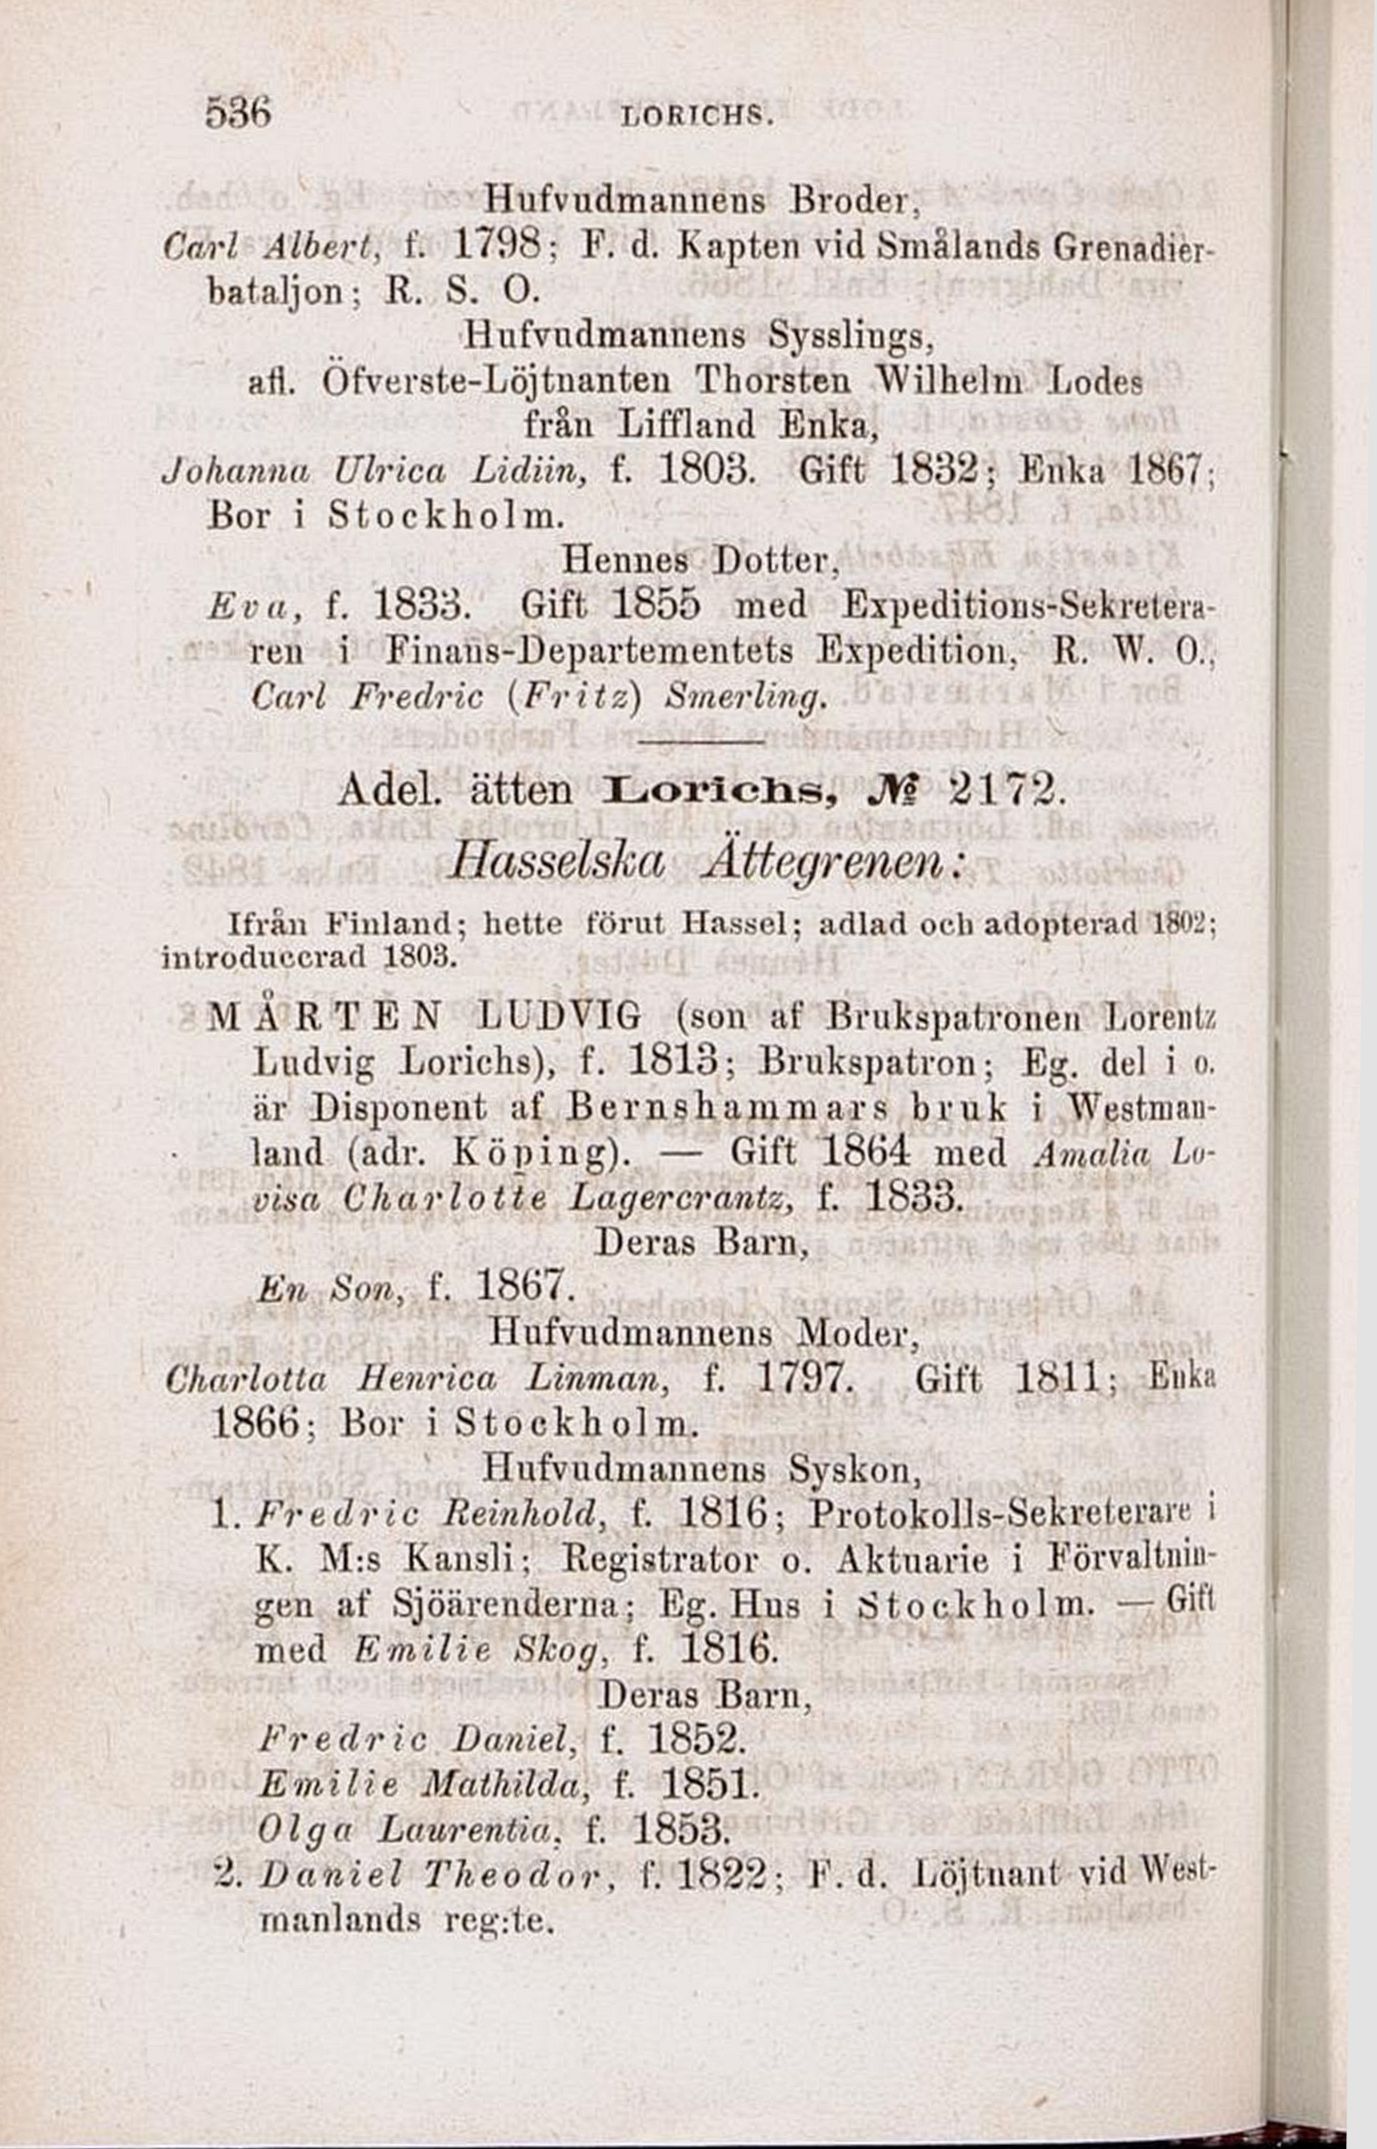 536
LORICHS.
Hufvudmannens Broder,
Carl Albert, f. 1798; F. d. Kapten vid Smålands Grenadier-
bataljon; R. S. O.
Hufvudmannens Sysslings,
afl. Öfverste-Löjtnanten Thorsten Wilhelm Lodes
från Liffland Enka,
Johanna Ulrica Lidiin, f. 1803. Gift 1832; Enka 1867;
Bor i Stockholm.
Hennes Dotter,
Eva, f. 1833. Gift 1855 med Expeditions-Sekretera-
ren i Finans-Departementets Expedition, R. W. O.,
Carl Fredric (Fritz) Smerling.
Adel. ätten Lorichs, № 2172.
Hasselska Ättegrenen:
Ifrån Finland; hette förut Hassel; adlad och adopterad 1802;
introducerad 1803.
MÅRTEN LUDVIG (son af Brukspatronen Lorentz
Ludvig Lorichs), f. 1813; Brukspatron; Eg. del i o.
är Disponent af Bernshammars bruk i Westman-
land (adr. Köping). — Gift 1864 med Amalia Lo-
visa Charlotte Lagercrantz, f. 1833.
Deras Barn,
En Son, f. 1867.
Hufvudmannens Moder,
Charlotta Henrica Linman, f. 1797. Gift 1811; Enka
1866; Bor i Stockholm.
Hufvudmannens Syskon,
1. Fredric Reinhold, f. 1816; Protokolls-Sekreterare i
K. M:s Kansli; Registrator o. Aktuarie i Förvaltnin-
gen af Sjöärenderna; Eg. Hus i Stockholm. — Gift
med Emilie Skog, f. 1816.
Deras Barn,
Fredric Daniel, f. 1852.
Emilie Mathilda, f. 1851.
Olga Laurentia, f. 1853.
2. Daniel Theodor, f. 1822; F. d. Löjtnant vid West-
manlands reg:te.